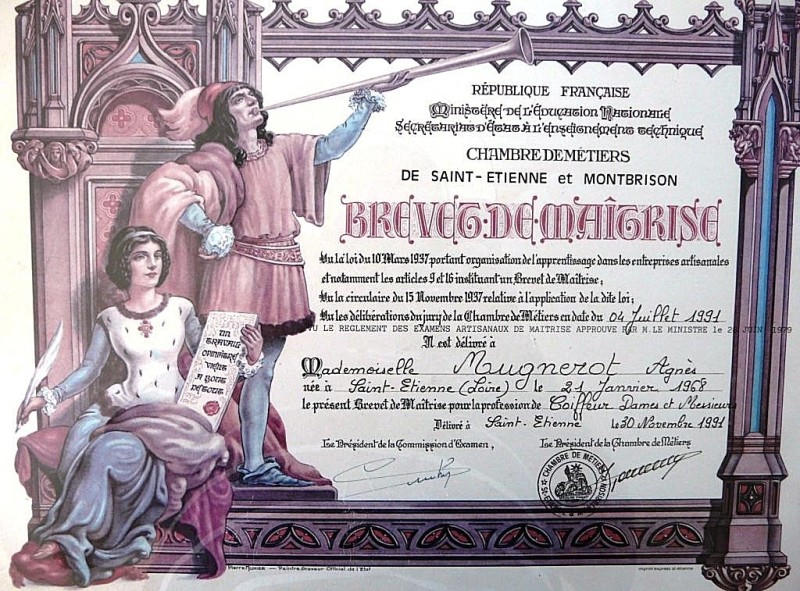 RÉPUBLIQUE FRANÇAISE
Ministère de l'Éducation Nationale
Secrétariat d'État à l'Enseignement technique
CHAMBRE DE MÉTIERS
DE SAINT-ETIENNE et MONTBRISON
BREVET·DE·MAÎTRISE
Vu la loi du 10 Mars 1937 portant organisation de l'apprentissage dans les entreprises artisanales
et notamment les articles 9 et 16 instituant un Brevet de Maîtrise;
Vu la circulaire du 15 Novembre 1937 relative à l'application de la dite loi;
Vu les délibérations du jury de la Chambre de Métiers en date du 04 Juillet 1991
VU LE REGLEMENT DES EXAMENS ARTISANAUX DE MAITRISE APPROUVE PAR M. LE MINISTRE le JUIN 1979
Il est délivré à
Mademoiselle Mugnerot Agnès
née à Saint-Etienne (Loire) le 21 Janvier 1968
le présent Brevet de Maîtrise pour la profession de Coiffeur Dames et Messieurs
Délivré à Saint-Etienne le 30 Novembre 1991
Le Président de la Commission d'Examen, Le Président de la Chambre de Métiers
UN
TRAVAIL
OPINIÂTRE
VIENT
A BOUT
DE TOUT
CHAMBRE DE METIERS
Pierre MUNIER — Peintre Graveur Officiel de l'Etat
imprim'express st-etienne